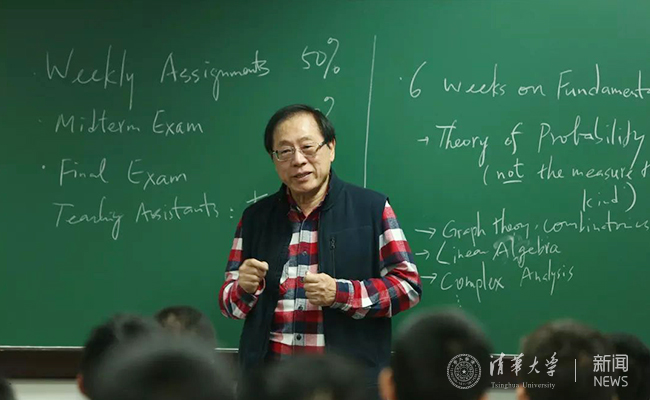 Weekly Assignments 50%
Midterm Exam ?
Final Exam
Teaching Assistants:
6 Weeks on Fundamenta
→ Theory of Probability
(not the measure
kind)
→ Graph theory, combinatorics
→ Linear Algebra
→ Complex Analysis
清华大学
Tsinghua University
新闻
NEWS